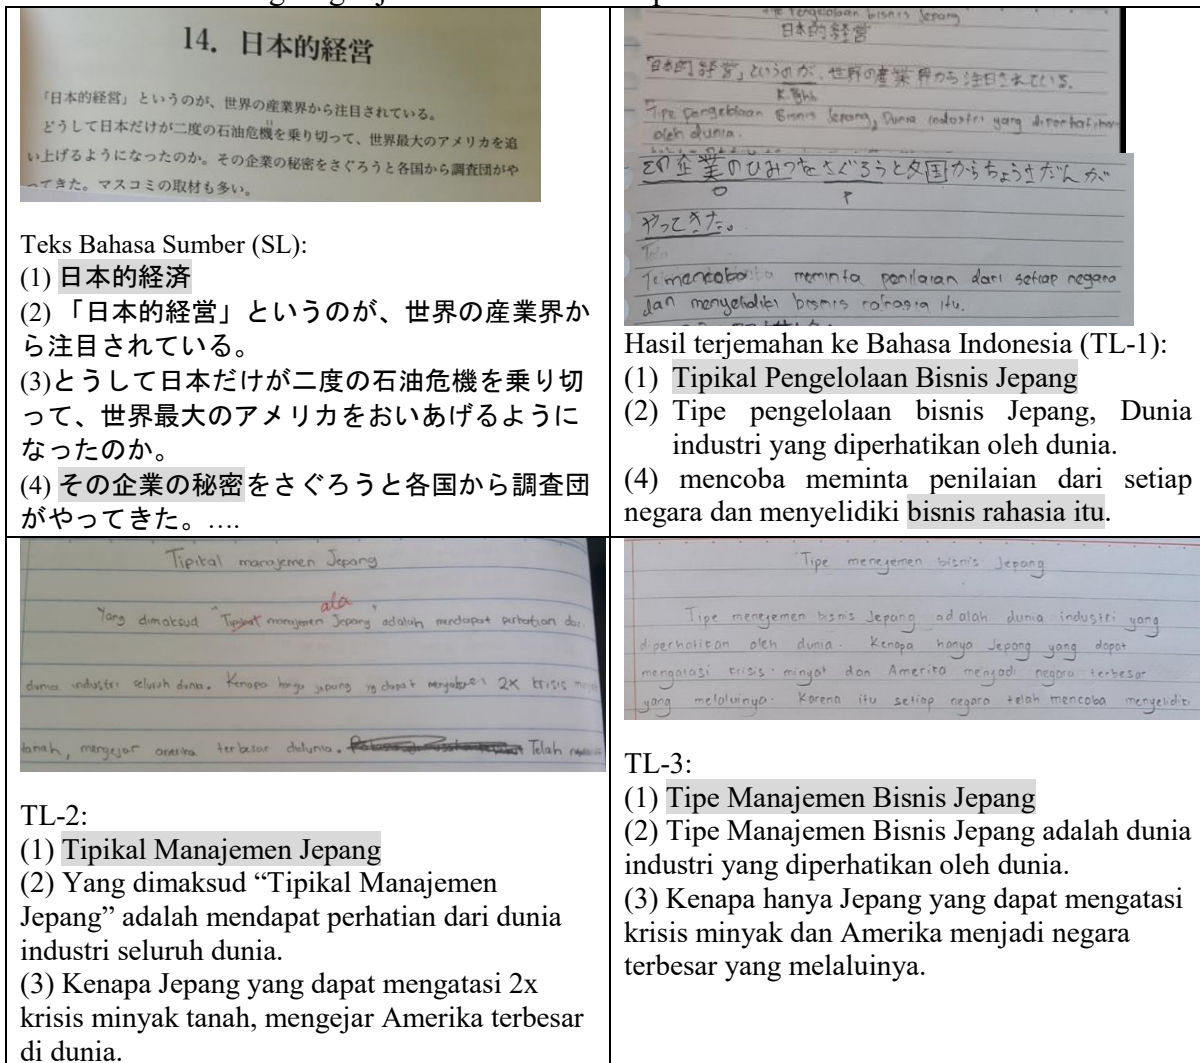 14. 日本的経営
「日本的経営」というのが、世界の産業界から注目されている。
どうして日本だけが二度の石油危機を乗り切って、世界最大のアメリカを追
い上げるようになったのか。その企業の秘密をさぐろうと各国から調査団がや
ってきた。マスコミの取材も多い。
Teks Bahasa Sumber (SL):
(1) 日本的経済
(2) 「日本的経営」というのが、世界の産業界か
ら注目されている。
(3)とうして日本だけが二度の石油危機を乗り切
って、世界最大のアメリカをおいあげるように
なったのか。
(4) その企業の秘密をさぐろうと各国から調査団
がやってきた。….
pengelolaan bisnis Jepang
日本的経営
「日本的経営」というのが、世界の産業界から注目されている。
Tipe pengelolaan bisnis Jepang, Dunia industri yang diperhatikan
oleh dunia.
その企業のひみつをさぐろうと各国からちょうさだんが
やってきた。
mencoba meminta penilaian dari setiap negara
dan menyelidiki bismis rahasia itu.
Hasil terjemahan ke Bahasa Indonesia (TL-1):
(1) Tipikal Pengelolaan Bisnis Jepang
(2) Tipe pengelolaan bisnis Jepang, Dunia
industri yang diperhatikan oleh dunia.
(4) mencoba meminta penilaian dari setiap
negara dan menyelidiki bisnis rahasia itu.
Tipikal manajemen Jepang
ala
Yang dimaksud "Tipikal manajemen Jepang" adalah mendapat perhatian dari
dunia industri seluruh dunia. Kenapa hanya jepang yg dapat mengatasi 2x krisis
tanah, mengejar amerika terbesar didunia. Telah
TL-2:
(1) Tipikal Manajemen Jepang
(2) Yang dimaksud “Tipikal Manajemen
Jepang” adalah mendapat perhatian dari dunia
industri seluruh dunia.
(3) Kenapa Jepang yang dapat mengatasi 2x
krisis minyak tanah, mengejar Amerika terbesar
di dunia.
Tipe menejemen bisnis Jepang
Tipe menejemen bisnis Jepang adalah dunia industri yang
diperhatikan oleh dunia. Kenapa hanya Jepang yang dapat
mengatasi krisis minyat dan Amerika menjadi negara terbesar
yang melaluinya. Karena itu setiap negara telah mencoba menyelidiki
TL-3:
(1) Tipe Manajemen Bisnis Jepang
(2) Tipe Manajemen Bisnis Jepang adalah dunia
industri yang diperhatikan oleh dunia.
(3) Kenapa hanya Jepang yang dapat mengatasi
krisis minyak dan Amerika menjadi negara
terbesar yang melaluinya.